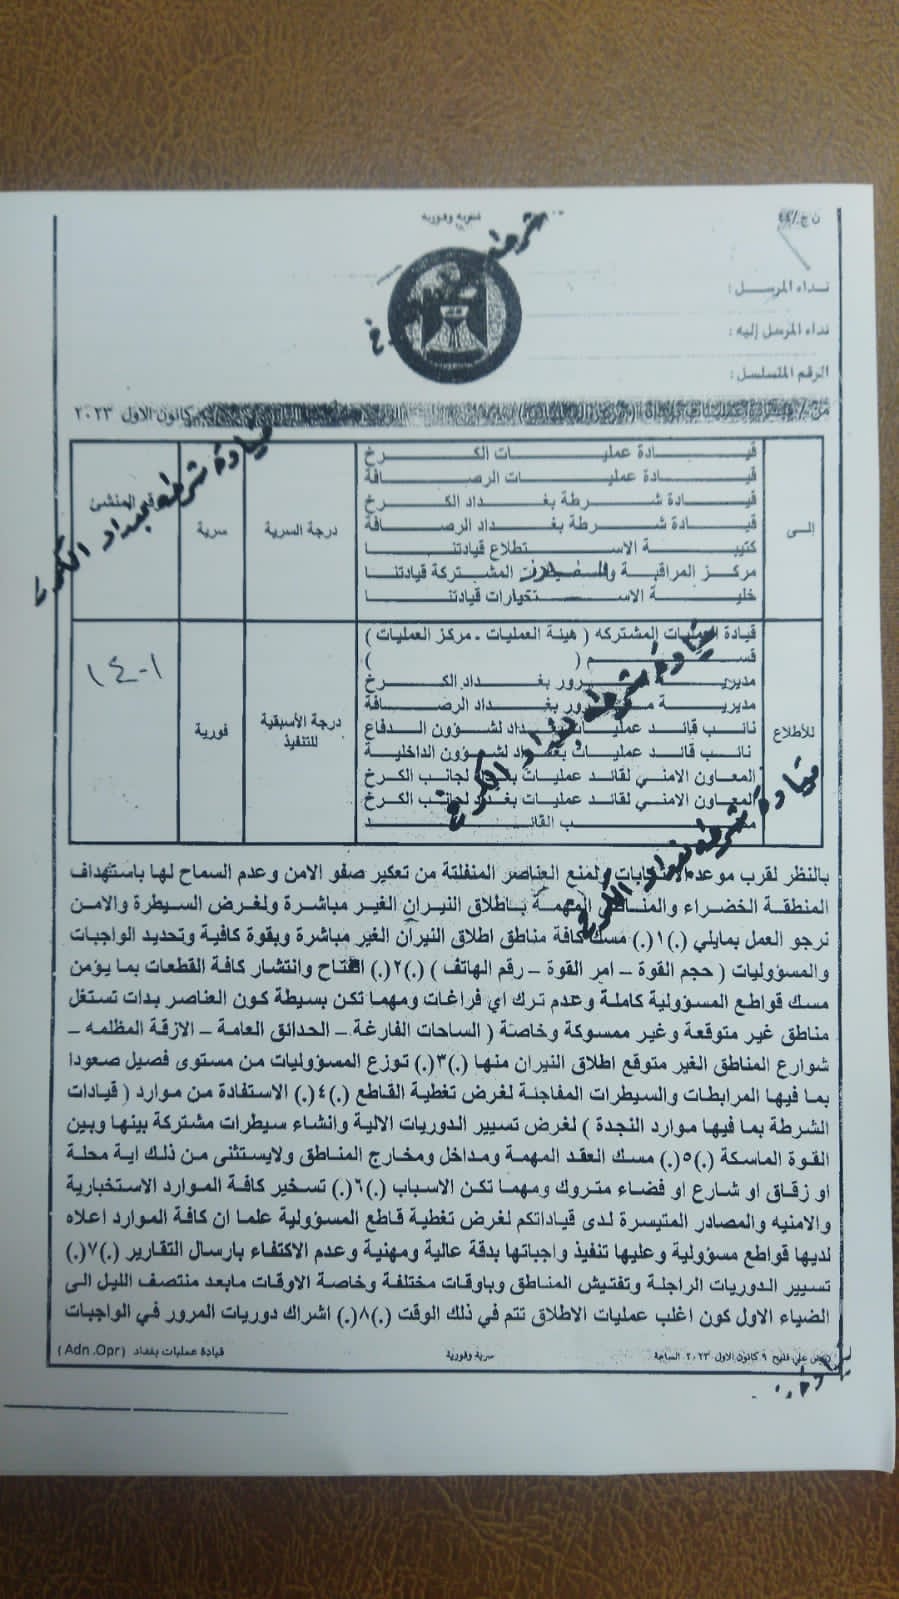 سرية وفورية
ن ج/٤٤
نداء المرسل :
نداء المرسل إليه :
الرقم المتسلسل :
كانون الاول ٢٠٢٣
إلى
قيادة عمليات الكرخ
قيادة عمليات الرصافة
قيادة شرطة بغداد الكرخ
قيادة شرطة بغداد الرصافة
كتيبة الاستطلاع قيادتنا
مركز المراقبة المشتركة قيادتنا
خلية الاستخبارات قيادتنا
درجة السرية
سرية
المنشئ
للأطلاع
قيادة العمليات المشتركه ( هيئة العمليات ـ مركز العمليات )
قسم ( )
مديرية مرور بغداد الكرخ
مديرية مرور بغداد الرصافة
نائب قائد عمليات بغداد لشؤون الدفاع
نائب قائد عمليات بغداد لشؤون الداخلية
المعاون الامني لقائد عمليات بغداد لجانب الكرخ
المعاون الامني لقائد عمليات بغداد لجانب الكرخ
القائد
درجة الأسبقية للتنفيذ
فورية
١٤٠١
قيادة شرطة بغداد الكرخ
قيادة شرطة بغداد الكرخ
قيادة شرطة بغداد الكرخ
بالنظر لقرب موعد الانتخابات ولمنع العناصر المنفلتة من تعكير صفو الامن وعدم السماح لها باستهداف
المنطقة الخضراء والمناطق المهمة باطلاق النيران الغير مباشرة ولغرض السيطرة والامن
نرجو العمل بمايلي (.)١(.) مسك كافة مناطق اطلاق النيران الغير مباشرة وبقوة كافية وتحديد الواجبات
والمسؤوليات ( حجم القوة – امر القوة – رقم الهاتف ) (.)٢(.) افتتاح وانتشار كافة القطعات بما يؤمن
مسك قواطع المسؤولية كاملة وعدم ترك اي فراغات ومهما تكن بسيطة كون العناصر بدات تستغل
مناطق غير متوقعة وغير ممسوكة وخاصة ( الساحات الفارغة – الحدائق العامة – الازقة المظلمه –
شوارع المناطق الغير متوقع اطلاق النيران منها (.)٣(.) توزع المسؤوليات من مستوى فصيل صعودا
بما فيها المرابطات والسيطرات المفاجئة لغرض تغطية القاطع (.)٤(.) الاستفادة من موارد ( قيادات
الشرطة بما فيها موارد النجدة ) لغرض تسيير الدوريات الالية وانشاء سيطرات مشتركة بينها وبين
القوة الماسكة (.)٥(.) مسك العقد المهمة ومداخل ومخارج المناطق ولايستثنى من ذلك اية محلة
او زقاق او شارع او فضاء متروك ومهما تكن الاسباب (.)٦(.) تسخير كافة الموارد الاستخبارية
والامنيه والمصادر المتيسرة لدى قياداتكم لغرض تغطية قاطع المسؤولية علما ان كافة الموارد اعلاه
لديها قواطع مسؤولية وعليها تنفيذ واجباتها بدقة عالية ومهنية وعدم الاكتفاء بارسال التقارير (.)٧(.)
تسيير الدوريات الراجلة وتفتيش المناطق وباوقات مختلفة وخاصة الاوقات مابعد منتصف الليل الى
الضياء الاول كون اغلب عمليات الاطلاق تتم في ذلك الوقت (.)٨(.) اشراك دوريات المرور في الواجبات
علي فليح ٩ كانون الاول ٢٠٢٣ الساعة
سرية وفورية
قيادة عمليات بغداد (Adn .Opr)